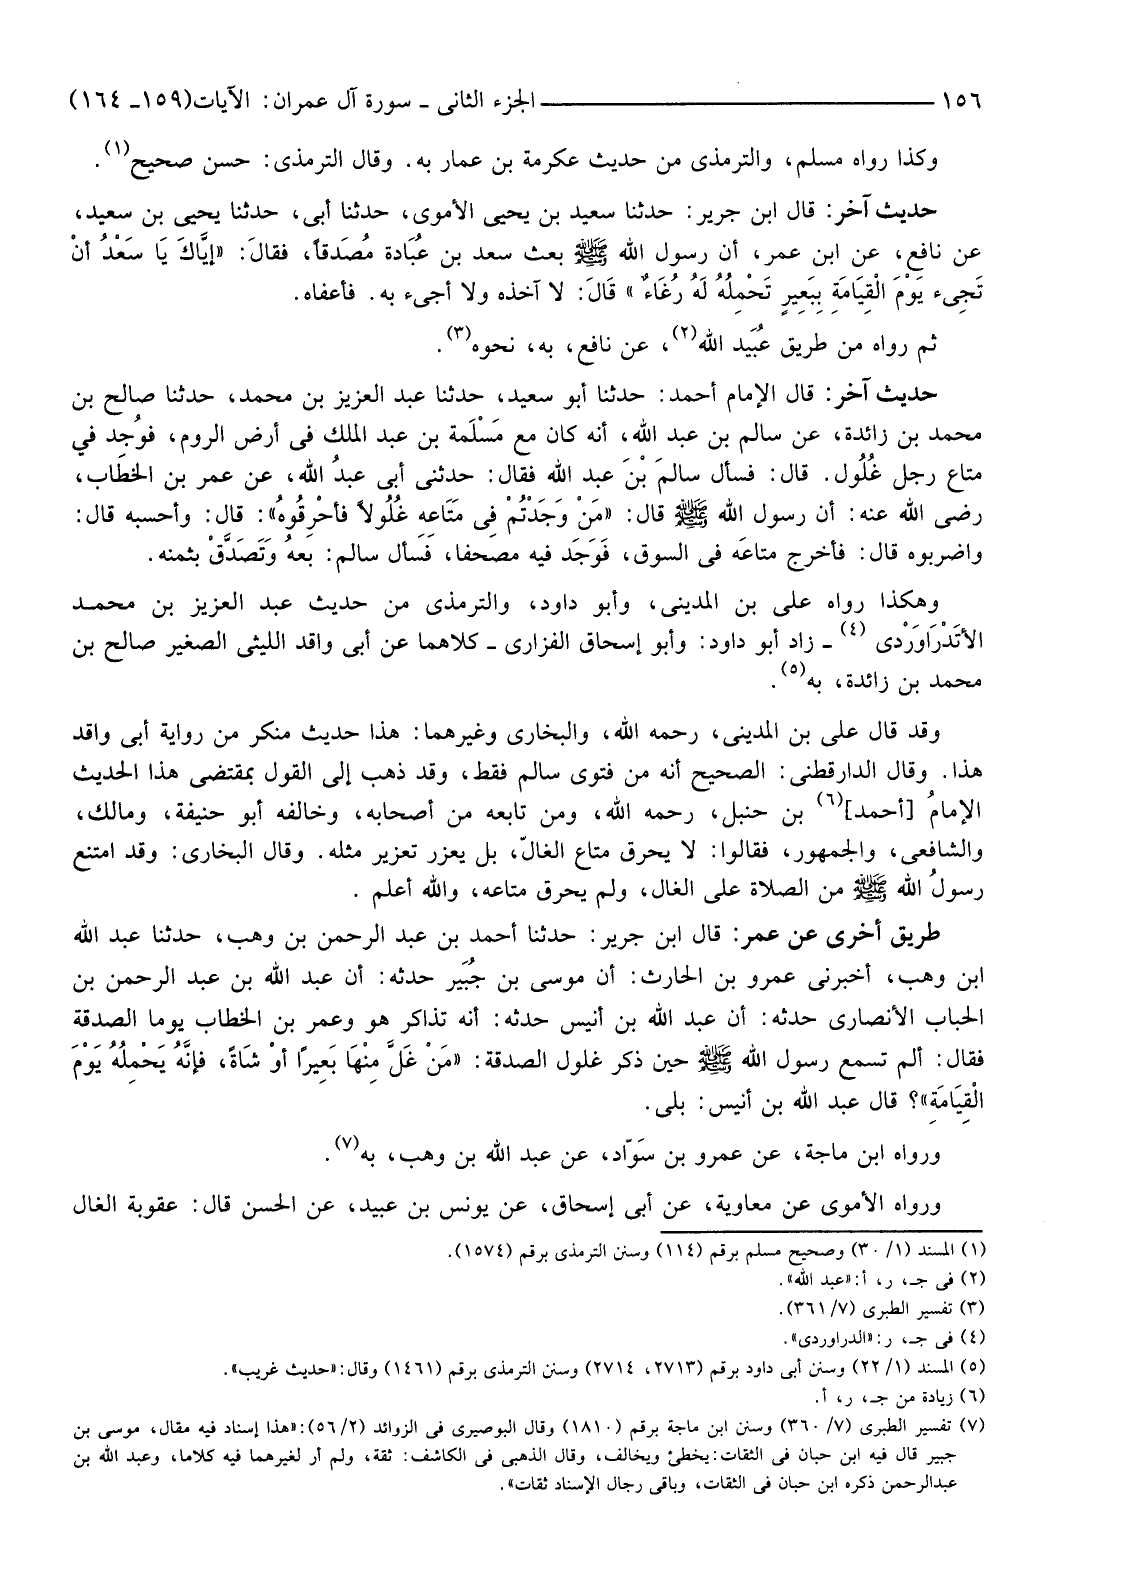 ١٥٦ ــــــــــــــــــ الجزء الثانى ـ سورة آل عمران: الآيات(١٥٩ـ ١٦٤)
وكذا رواه مسلم، والترمذى من حديث عكرمة بن عمار به. وقال الترمذى: حسن صحيح(١).
حديث آخر: قال ابن جرير: حدثنا سعيد بن يحيى الأموى، حدثنا أبى، حدثنا يحيى بن سعيد،
عن نافع، عن ابن عمر، أن رسول الله ﷺ بعث سعد بن عُبَادة مُصَدقاً، فقالَ: «إيَّاكَ يَا سَعْدُ أنْ
تَجِىء يَوْمَ الْقِيَامَةِ بِبَعِيرٍ تَحْمِلُهُ لَهُ رُغَاءٌ » قَالَ: لا آخذه ولا أجىء به. فأعفاه.
ثم رواه من طريق عُبَيد الله(٢)، عن نافع، به، نحوه(٣).
حديث آخر: قال الإمام أحمد: حدثنا أبو سعيد، حدثنا عبد العزيز بن محمد، حدثنا صالح بن
محمد بن زائدة، عن سالم بن عبد الله، أنه كان مع مَسْلَمة بن عبد الملك فى أرض الروم، فوُجِد في
متاع رجل غُلُول. قال: فسأل سالمَ بْنَ عبد الله فقال: حدثنى أبى عبدُ الله، عن عمر بن الخطاب،
رضى الله عنه: أن رسول الله ﷺ قال: «مَنْ وَجَدْتُمْ فِى مَتَاعِهِ غُلُولاً فأحْرِقُوهُ»: قال: وأحسبه قال:
واضربوه قال: فأخرج متاعَه فى السوق، فَوَجَد فيه مصحفا، فَسأل سالم: بعهُ وَتَصَدَّقْ بثمنه.
وهكذا رواه على بن المدينى، وأبو داود، والترمذى من حديث عبد العزيز بن محمـد
الأنَدْرَاوَرْدى (٤) ـ زاد أبو داود: وأبو إسحاق الفزارى ـ كلاهما عن أبى واقد الليثى الصغير صالح بن
محمد بن زائدة، به(٥).
وقد قال على بن المدينى، رحمه الله، والبخارى وغيرهما: هذا حديث منكر من رواية أبى واقد
هذا. وقال الدارقطنى: الصحيح أنه من فتوى سالم فقط، وقد ذهب إلى القول بمقتضى هذا الحديث
الإمامُ [أحمد](٦) بن حنبل، رحمه الله، ومن تابعه من أصحابه، وخالفه أبو حنيفة، ومالك،
والشافعى، والجمهور، فقالوا: لا يحرق متاع الغالّ، بل يعزر تعزير مثله. وقال البخارى: وقد امتنع
رسولُ الله ﷺ من الصلاة على الغال، ولم يحرق متاعه، والله أعلم .
طريق أخرى عن عمر: قال ابن جرير: حدثنا أحمد بن عبد الرحمن بن وهب، حدثنا عبد الله
ابن وهب، أخبرنى عمرو بن الحارث: أن موسى بن جُبَير حدثه: أن عبد الله بن عبد الرحمن بن
الحباب الأنصارى حدثه: أن عبد الله بن أنيس حدثه: أنه تذاكر هو وعمر بن الخطاب يوما الصدقة
فقال: ألم تسمع رسول الله ﷺ حين ذكر غلول الصدقة: «مَنْ غَلَّ مِنْهَا بَعِيرًا أوْ شَاةً، فإنَّهُ يَحْمِلُهُ يَوْمَ
الْقِيَامَةِ»؟ قال عبد الله بن أنيس: بلى.
ورواه ابن ماجة، عن عمرو بن سَوّاد، عن عبد الله بن وهب، به(٧).
ورواه الأموى عن معاوية، عن أبى إسحاق، عن يونس بن عبيد، عن الحسن قال: عقوبة الغال
(١) المسند (١/ ٣٠) وصحيح مسلم برقم (١١٤) وسنن الترمذى برقم (١٥٧٤).
(٢) فى جـ، ر، أ:«عبد الله».
(٣) تفسير الطبرى (٧/ ٣٦١).
(٤) فى جـ، ر:«الدراوردى».
(٥) المسند (١/ ٢٢) وسنن أبى داود برقم (٢٧١٣، ٢٧١٤) وسنن الترمذى برقم (١٤٦١) وقال:«حديث غريب».
(٦) زيادة من جـ، ر، أ.
(٧) تفسير الطبرى (٧/ ٣٦٠) وسنن ابن ماجة برقم (١٨١٠) وقال البوصيرى فى الزوائد (٢/ ٥٦):«هذا إسناد فيه مقال، موسى بن
جبير قال فيه ابن حبان فى الثقات:يخطئ ويخالف، وقال الذهبى فى الكاشف: ثقة، ولم أر لغيرهما فيه كلاما، وعبد الله بن
عبدالرحمن ذكره ابن حبان فى الثقات، وباقى رجال الإسناد ثقات».